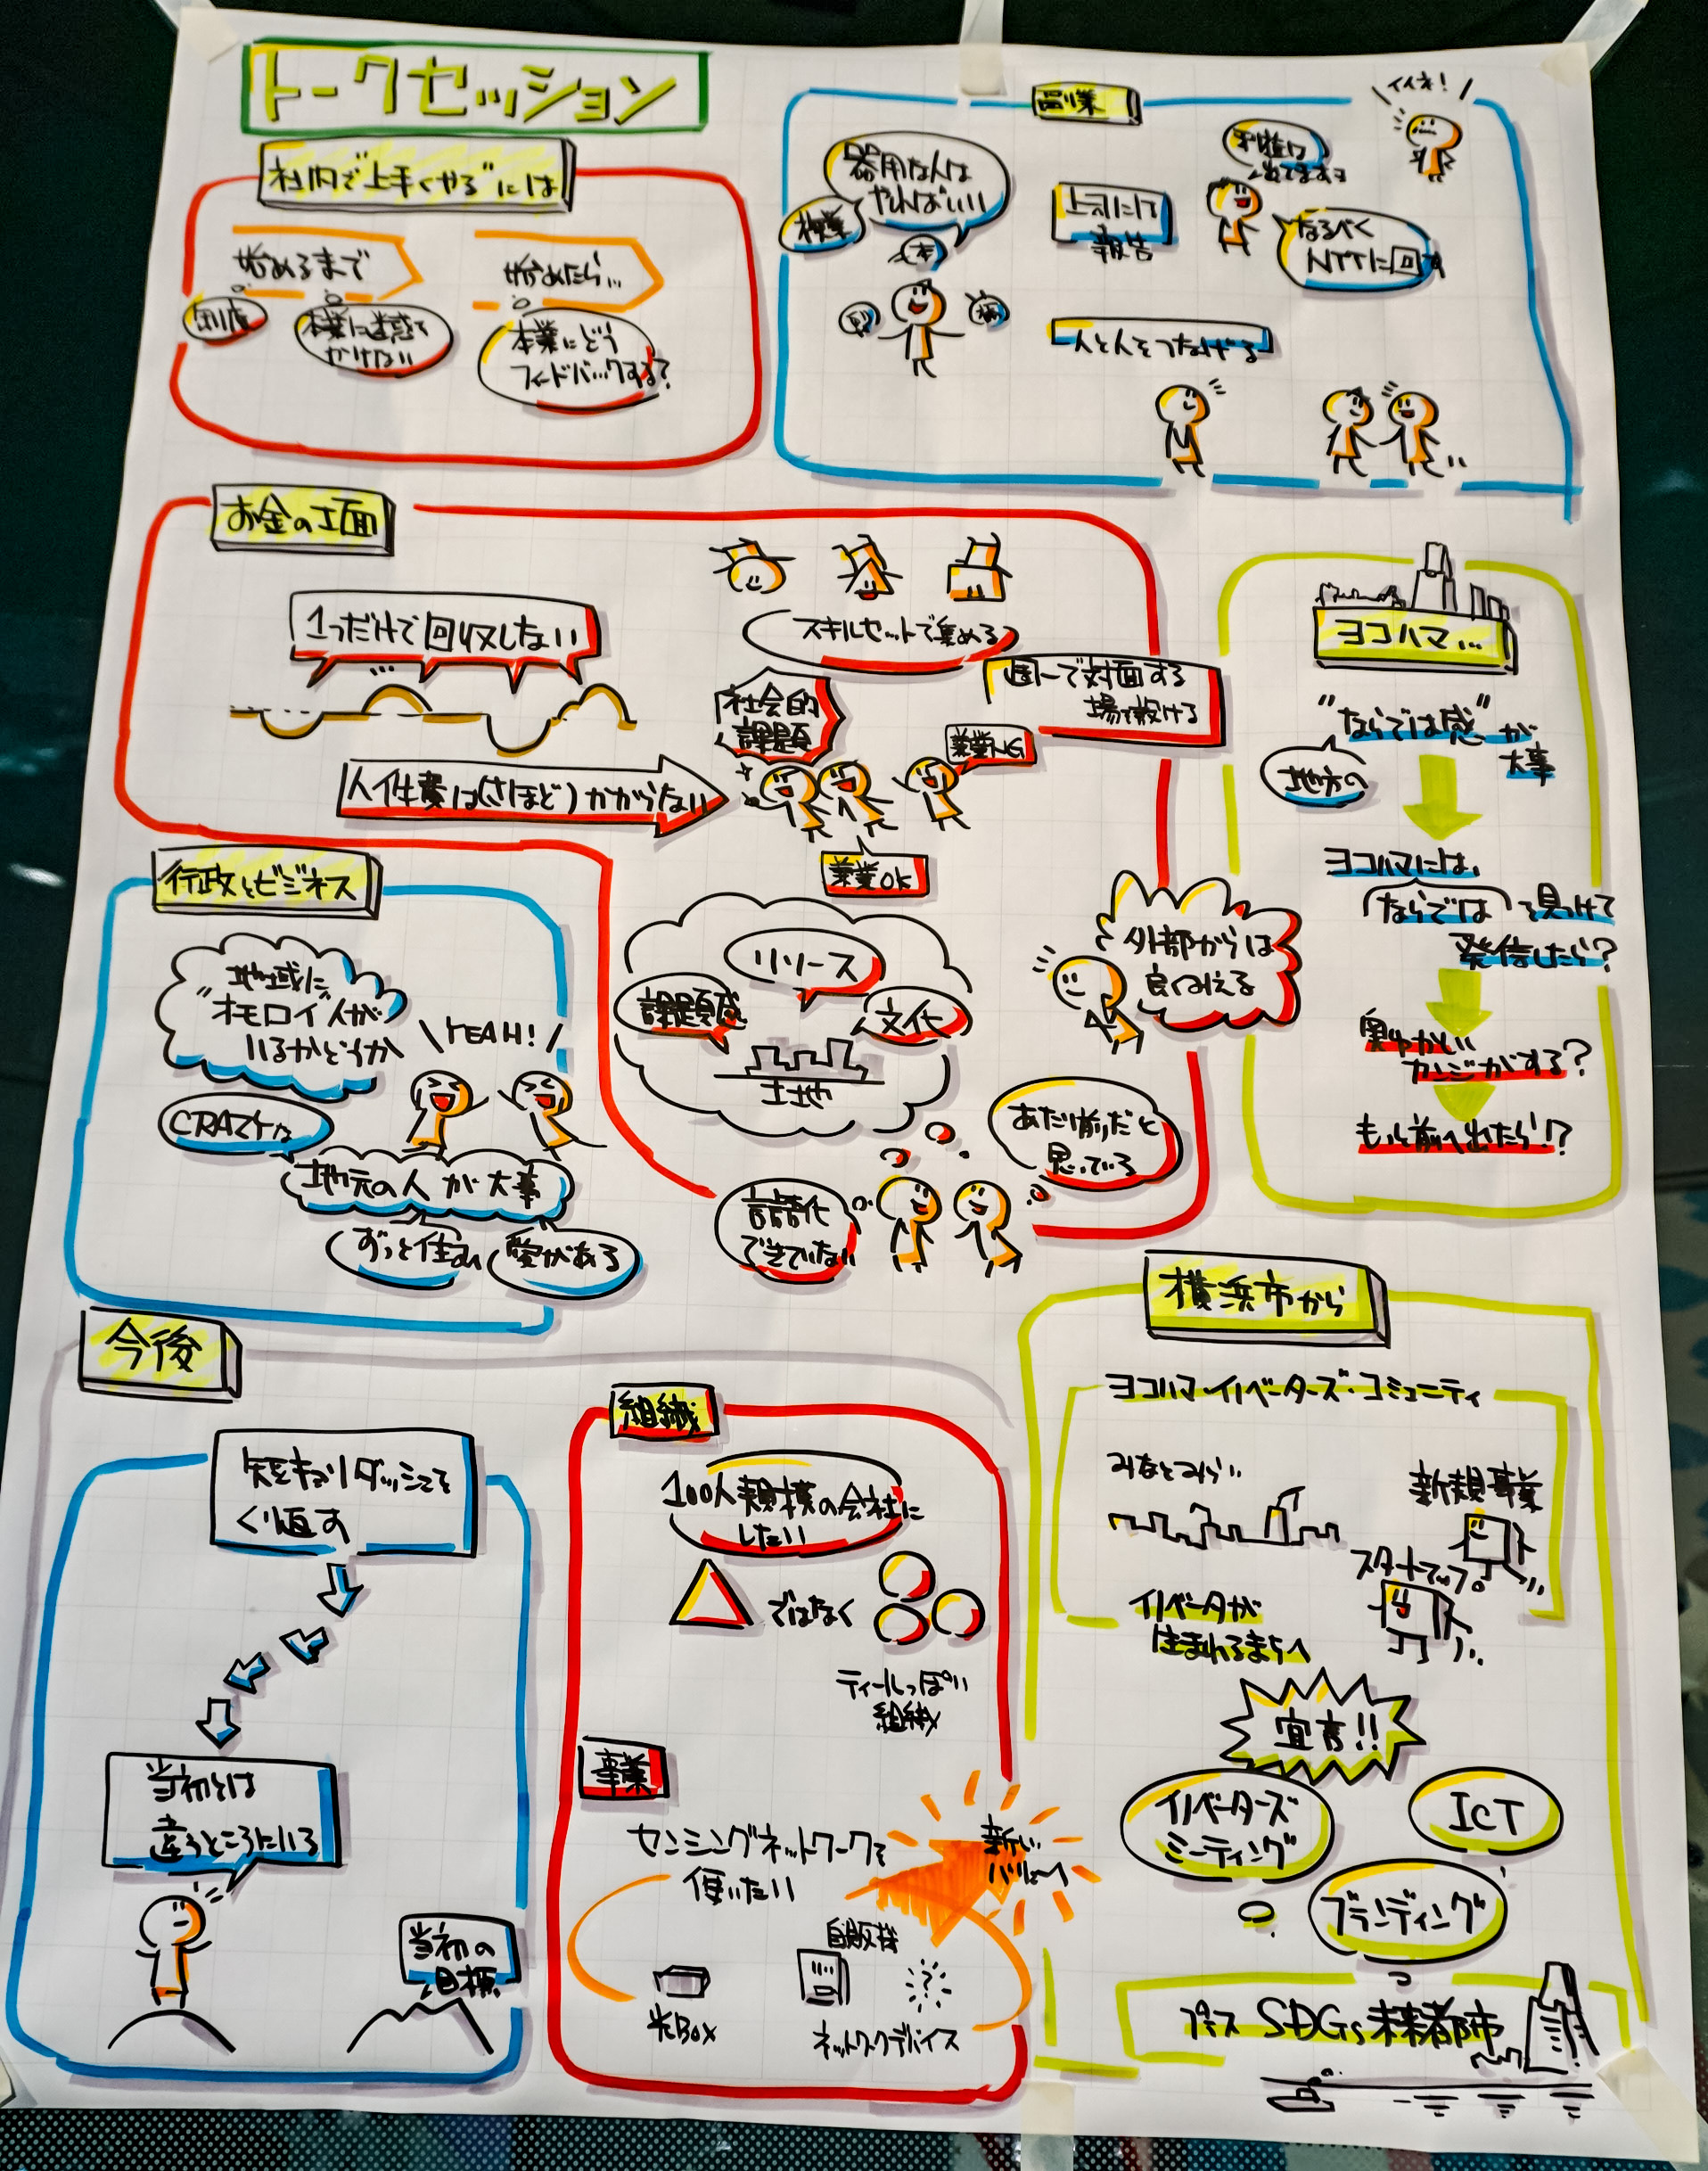 トークセッション
社内で上手くやるには
始めるまで
制度
本業に迷惑を
かけない
始めたら…
本業にどう
フィードバックする?
副業
器用な人は
やればいい
本
上司には
報告
利益は
出てますヨ
イイネ!
なるべく
NTTに回す
人と人をつなげる
お金の工面
1つだけで回収しない
スキルセットで集める
社会的
課題
週一で対面する
場を設ける
兼業NG
人件費は(さほど)かからない
兼業OK
リソース
課題感
文化
土地
外部からは
良く見える
あたり前だと
思っている
言語化
できていない
ヨコハマ…
"ならでは感"が
大事
地方の
ヨコハマには、
ならでは を見つけて
発信したら?
奥ゆかしい
カンジがする?
もっと前へ出たら!?
行政とビジネス
地域に
"オモロイ"人が
いるかどうか
YEAH!
CRAZYな
地元の人が大事
ずっと住む
愛がある
今後
短キョリダッシュを
くり返す
当初とは
違うところにいる
当初の
目標
組織
100人規模の会社に
したい
ではなく
ティールっぽい
組織
事業
センシングネットワークを
使いたい
新しい
バリューへ
自販機
光BOX
ネットワークデバイス
横浜市から
ヨコハマ・イノベーターズ・コミュニティ
みなとみらい
新規事業
スタートアップ
イノベータが
生まれるまちへ
宣言!!
イノベーターズ
ミーティング
ICT
ブランディング
プラス SDGs未来都市